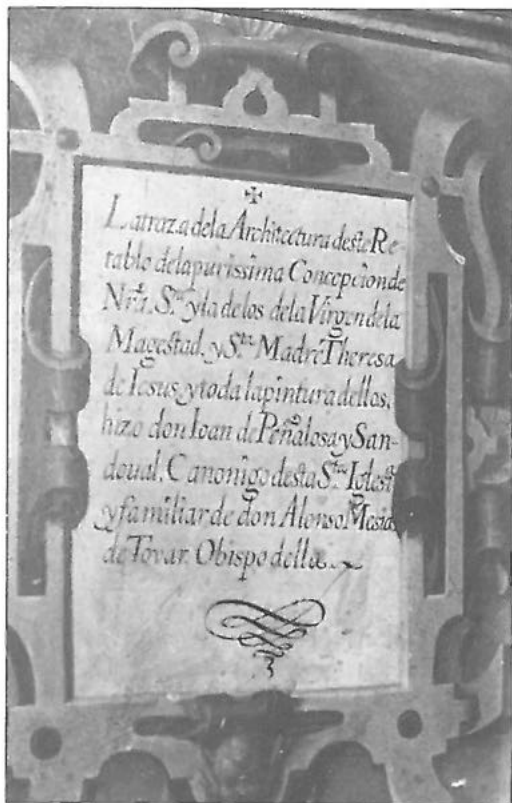 ✠
La traza de la Architectura deste Re-
tablo de la purissima Concepcion de
Nrã. S.ra y la de los de la Virgen de la
Magestad. y S.ta Madre Theresa
de Iesus, y toda la pintura dellos,
hizo don Ioan de Peñalosa y San-
doual. Canonigo desta S.ta Iglesia
y familiar de don Alonso Mesia
de Tovar. Obispo della.